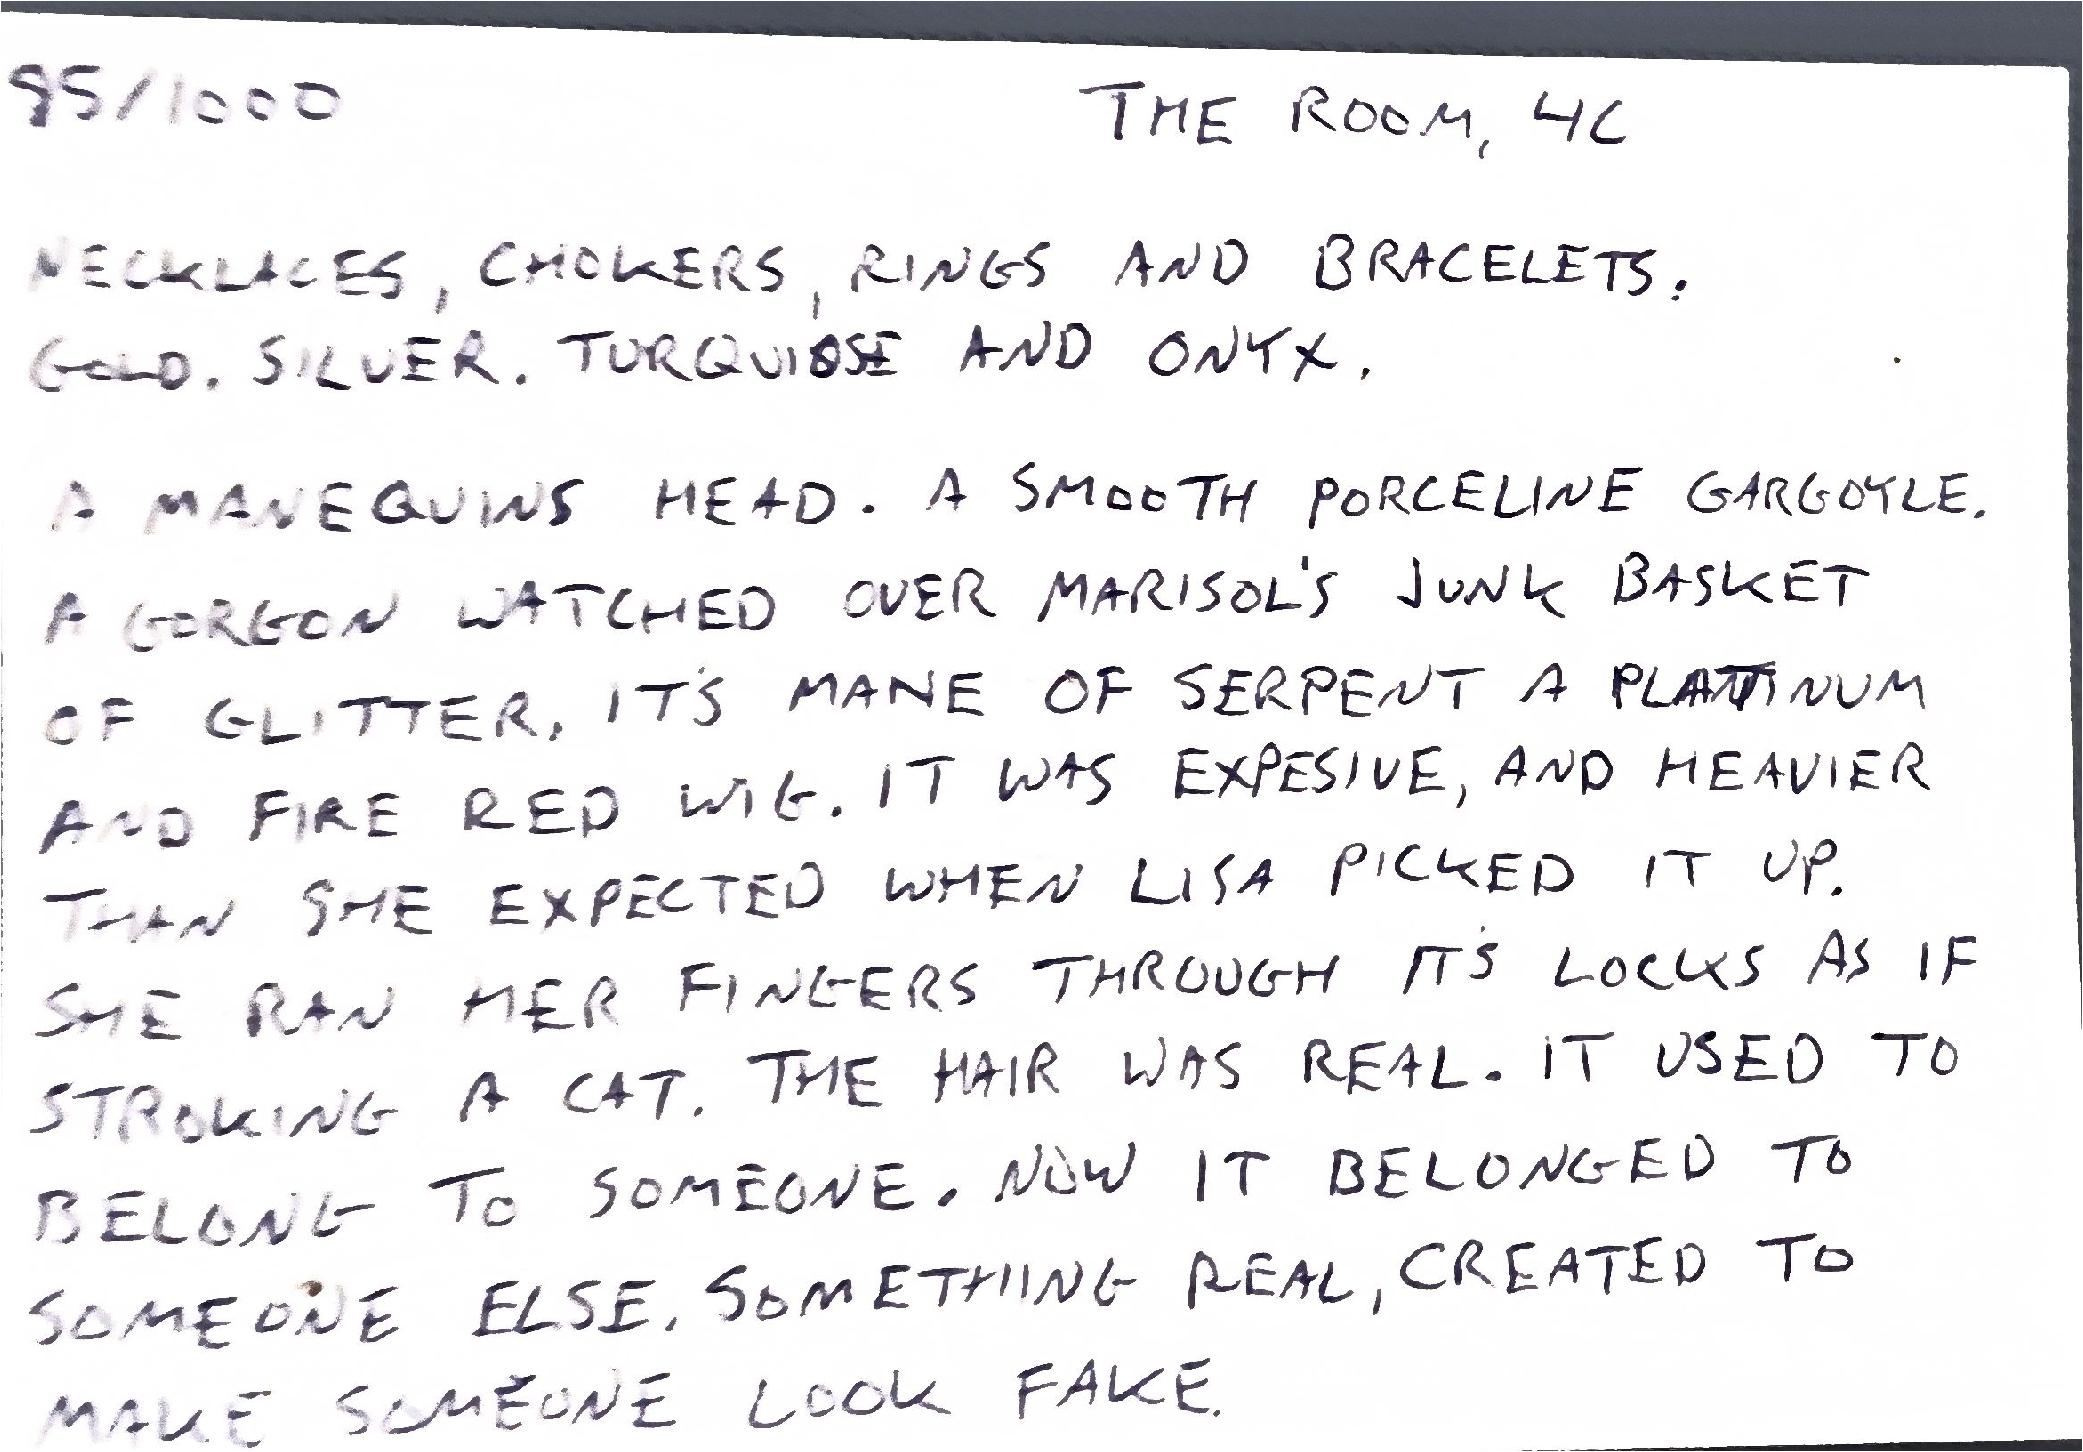 95/1000 THE ROOM, 4C
NECKLACES, CHOKERS, RINGS AND BRACELETS.
GOLD. SILVER. TURQUIOSE AND ONYX.
A MANEQUINS HEAD. A SMOOTH PORCELINE GARGOYLE.
A GORGON WATCHED OVER MARISOL'S JUNK BASKET
OF GLITTER. IT'S MANE OF SERPENT A PLATINUM
AND FIRE RED WIG. IT WAS EXPESIVE, AND HEAVIER
THAN SHE EXPECTED WHEN LISA PICKED IT UP.
SHE RAN HER FINGERS THROUGH IT'S LOCKS AS IF
STROKING A CAT. THE HAIR WAS REAL. IT USED TO
BELONG TO SOMEONE. NOW IT BELONGED TO
SOMEONE ELSE. SOMETHING REAL, CREATED TO
MAKE SOMEONE LOOK FAKE.